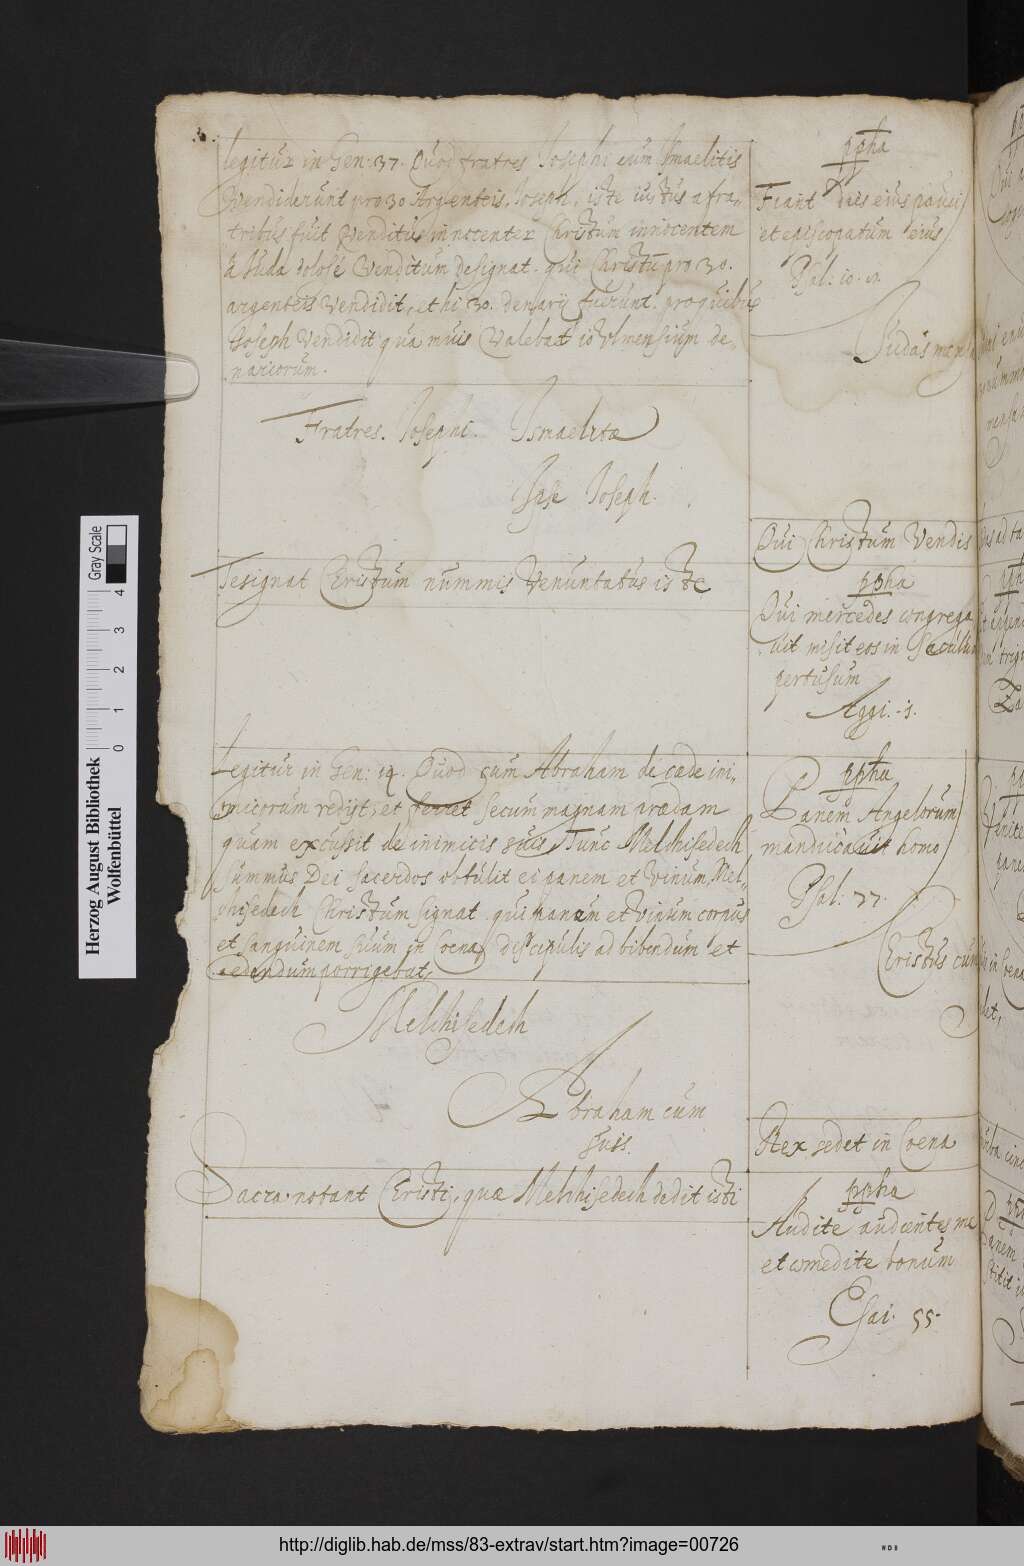 legitur in Gen: 37. Quod fratres Josephi eum Ismaelitis
Vendiderunt pro 30 Argenteis. Joseph, iste iustus a fra-
tribus fuit Venditus innocenter Christum innocentem
â Iuda dolosé Venditum designat. qui Christū pro 30.
argenteis Vendidit, et hi 30. denarij fuerunt. pro quibus
Joseph Vendidit quamuis Valebat 10 Vlmensium de-
nariorum.
Fratres. Josephi. Ismaelitæ
Ipse Joseph.
Designat Cristum nummis Venuntatus iste
Legitur in Gen: 14. Quod cum Abraham de cæde ini-
micorum redijt, et ferret secum magnam prædam
quam excussit de inimicis suis, Tunc Melchisedech
summus Dei sacerdos obtulit ei panem et Vinum, Mel-
chisedech Christum signat qui panem et Vinum corpus
et sanguinem suum in Coena Discipulis ad bibendum et
edendum porrigebat,
Melchisedech
Abraham cum
suis.
Sacra notant Cristi, quæ Melchisedech dedit isti
ppha
Fiant dies eius pauci
et episcopatum eius
Psal: 10.
Judas
Qui Christum Vendis
ppha
Qui mercedes congrega
uit misit eos in
pertusum
Aggi. 1.
ppha
Panem Angelorum
manducauit homo
Psal: 77.
Cristus cum
Rex sedet in Coena
ppha
Audite audientes me
et comedite bonum
Esai. 55.
Herzog August Bibliothek
Wolfenbüttel
0 1 2 3 4
Gray Scale
http://diglib.hab.de/mss/83-extrav/start.htm?image=00726
WDB